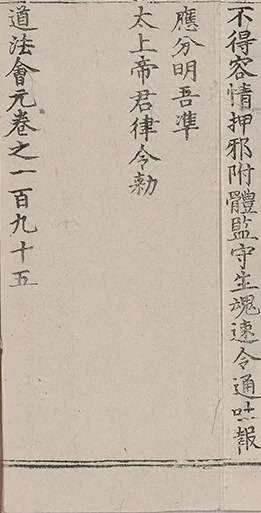 不得容情押邪附體監守生魂速令通吐報
應分明吾準
太上帝君律令勑
道法會元卷之一百九十五